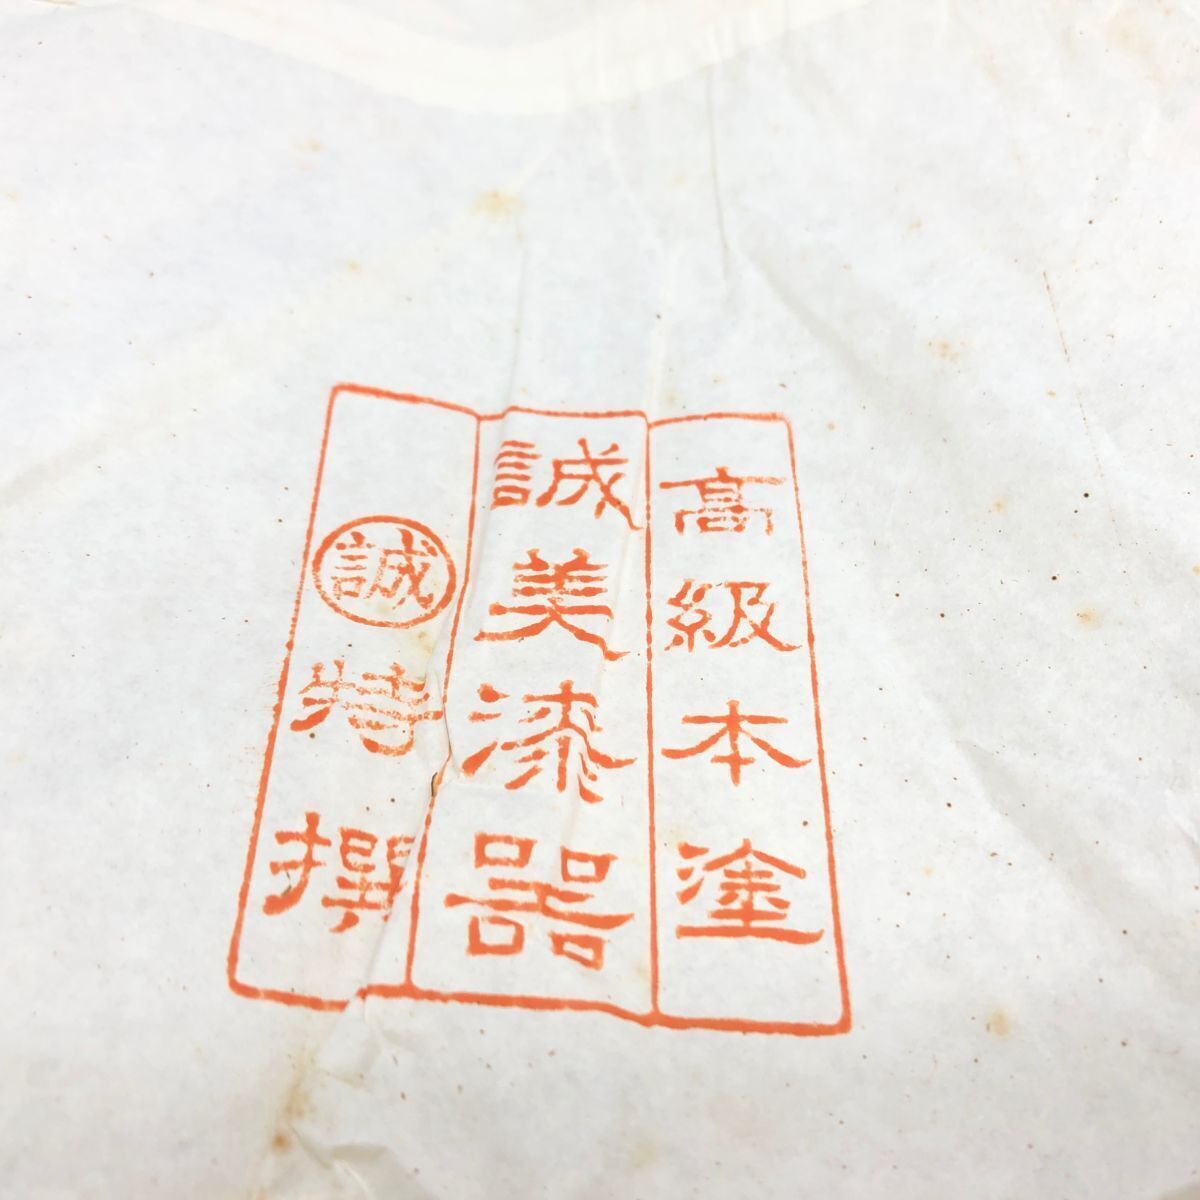 高級本塗
誠美漆器
誠特撰